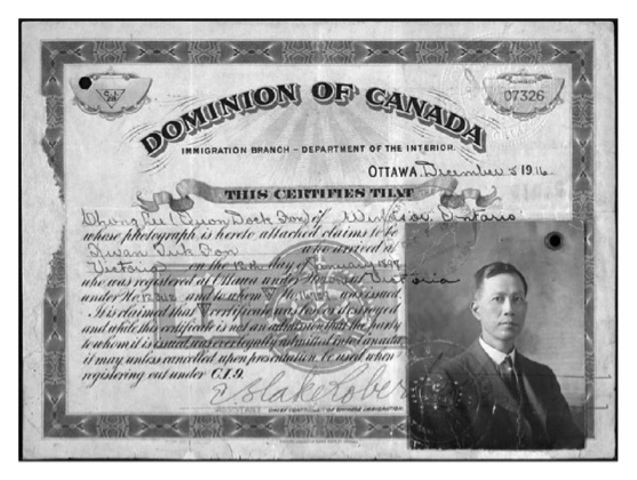 C.I. 28
NUMBER
07326
DOMINION OF CANADA
IMMIGRATION BRANCH – DEPARTMENT OF THE INTERIOR.
OTTAWA, December 5 1916
THIS CERTIFIES THAT
Chong Lee (Quon Dock Fon) of Windsor, Ontario
whose photograph is hereto attached claims to be
who arrived at
Victoria on the 12th day of January 1898
who was registered at Ottawa under Victoria
under No. and to whom No. was issued.
It is claimed that certificate was lost or destroyed
and while this certificate is not an admission that the party
to whom it is issued was ever legally admitted into Canada,
it may, unless cancelled upon presentation, be used when
registering out under C.I.9.
ASSISTANT CHIEF CONTROLLER OF CHINESE IMMIGRATION